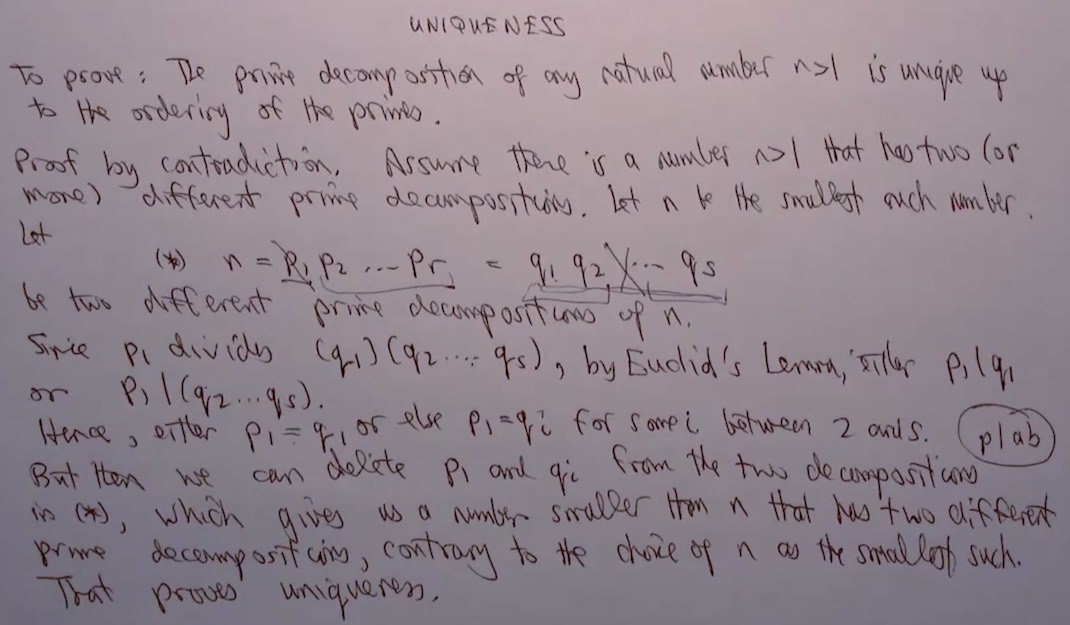 UNIQUENESS
To prove: The prime decomposition of any natural number n>1 is unique up
to the ordering of the primes.
Proof by contradiction. Assume there is a number n>1 that has two (or
more) different prime decompositions. Let n be the smallest such number.
Let
(*) n = p₁ p₂ ... pᵣ = q₁ q₂ ... qₛ
be two different prime decompositions of n.
Since p₁ divides (q₁)(q₂ ... qₛ), by Euclid's Lemma, either p₁|q₁
or p₁|(q₂...qₛ).
Hence, either p₁ = q₁, or else p₁=qᵢ for some i between 2 and s.
p|ab
But then we can delete p₁ and qᵢ from the two decompositions
in (*), which gives us a number smaller than n that has two different
prime decompositions, contrary to the choice of n as the smallest such.
That proves uniqueness.